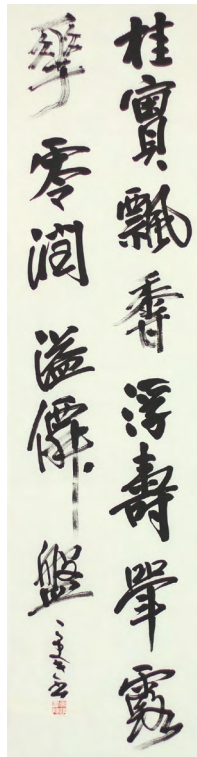 桂實飄香浮壽斝露
華零潤溢僊盤